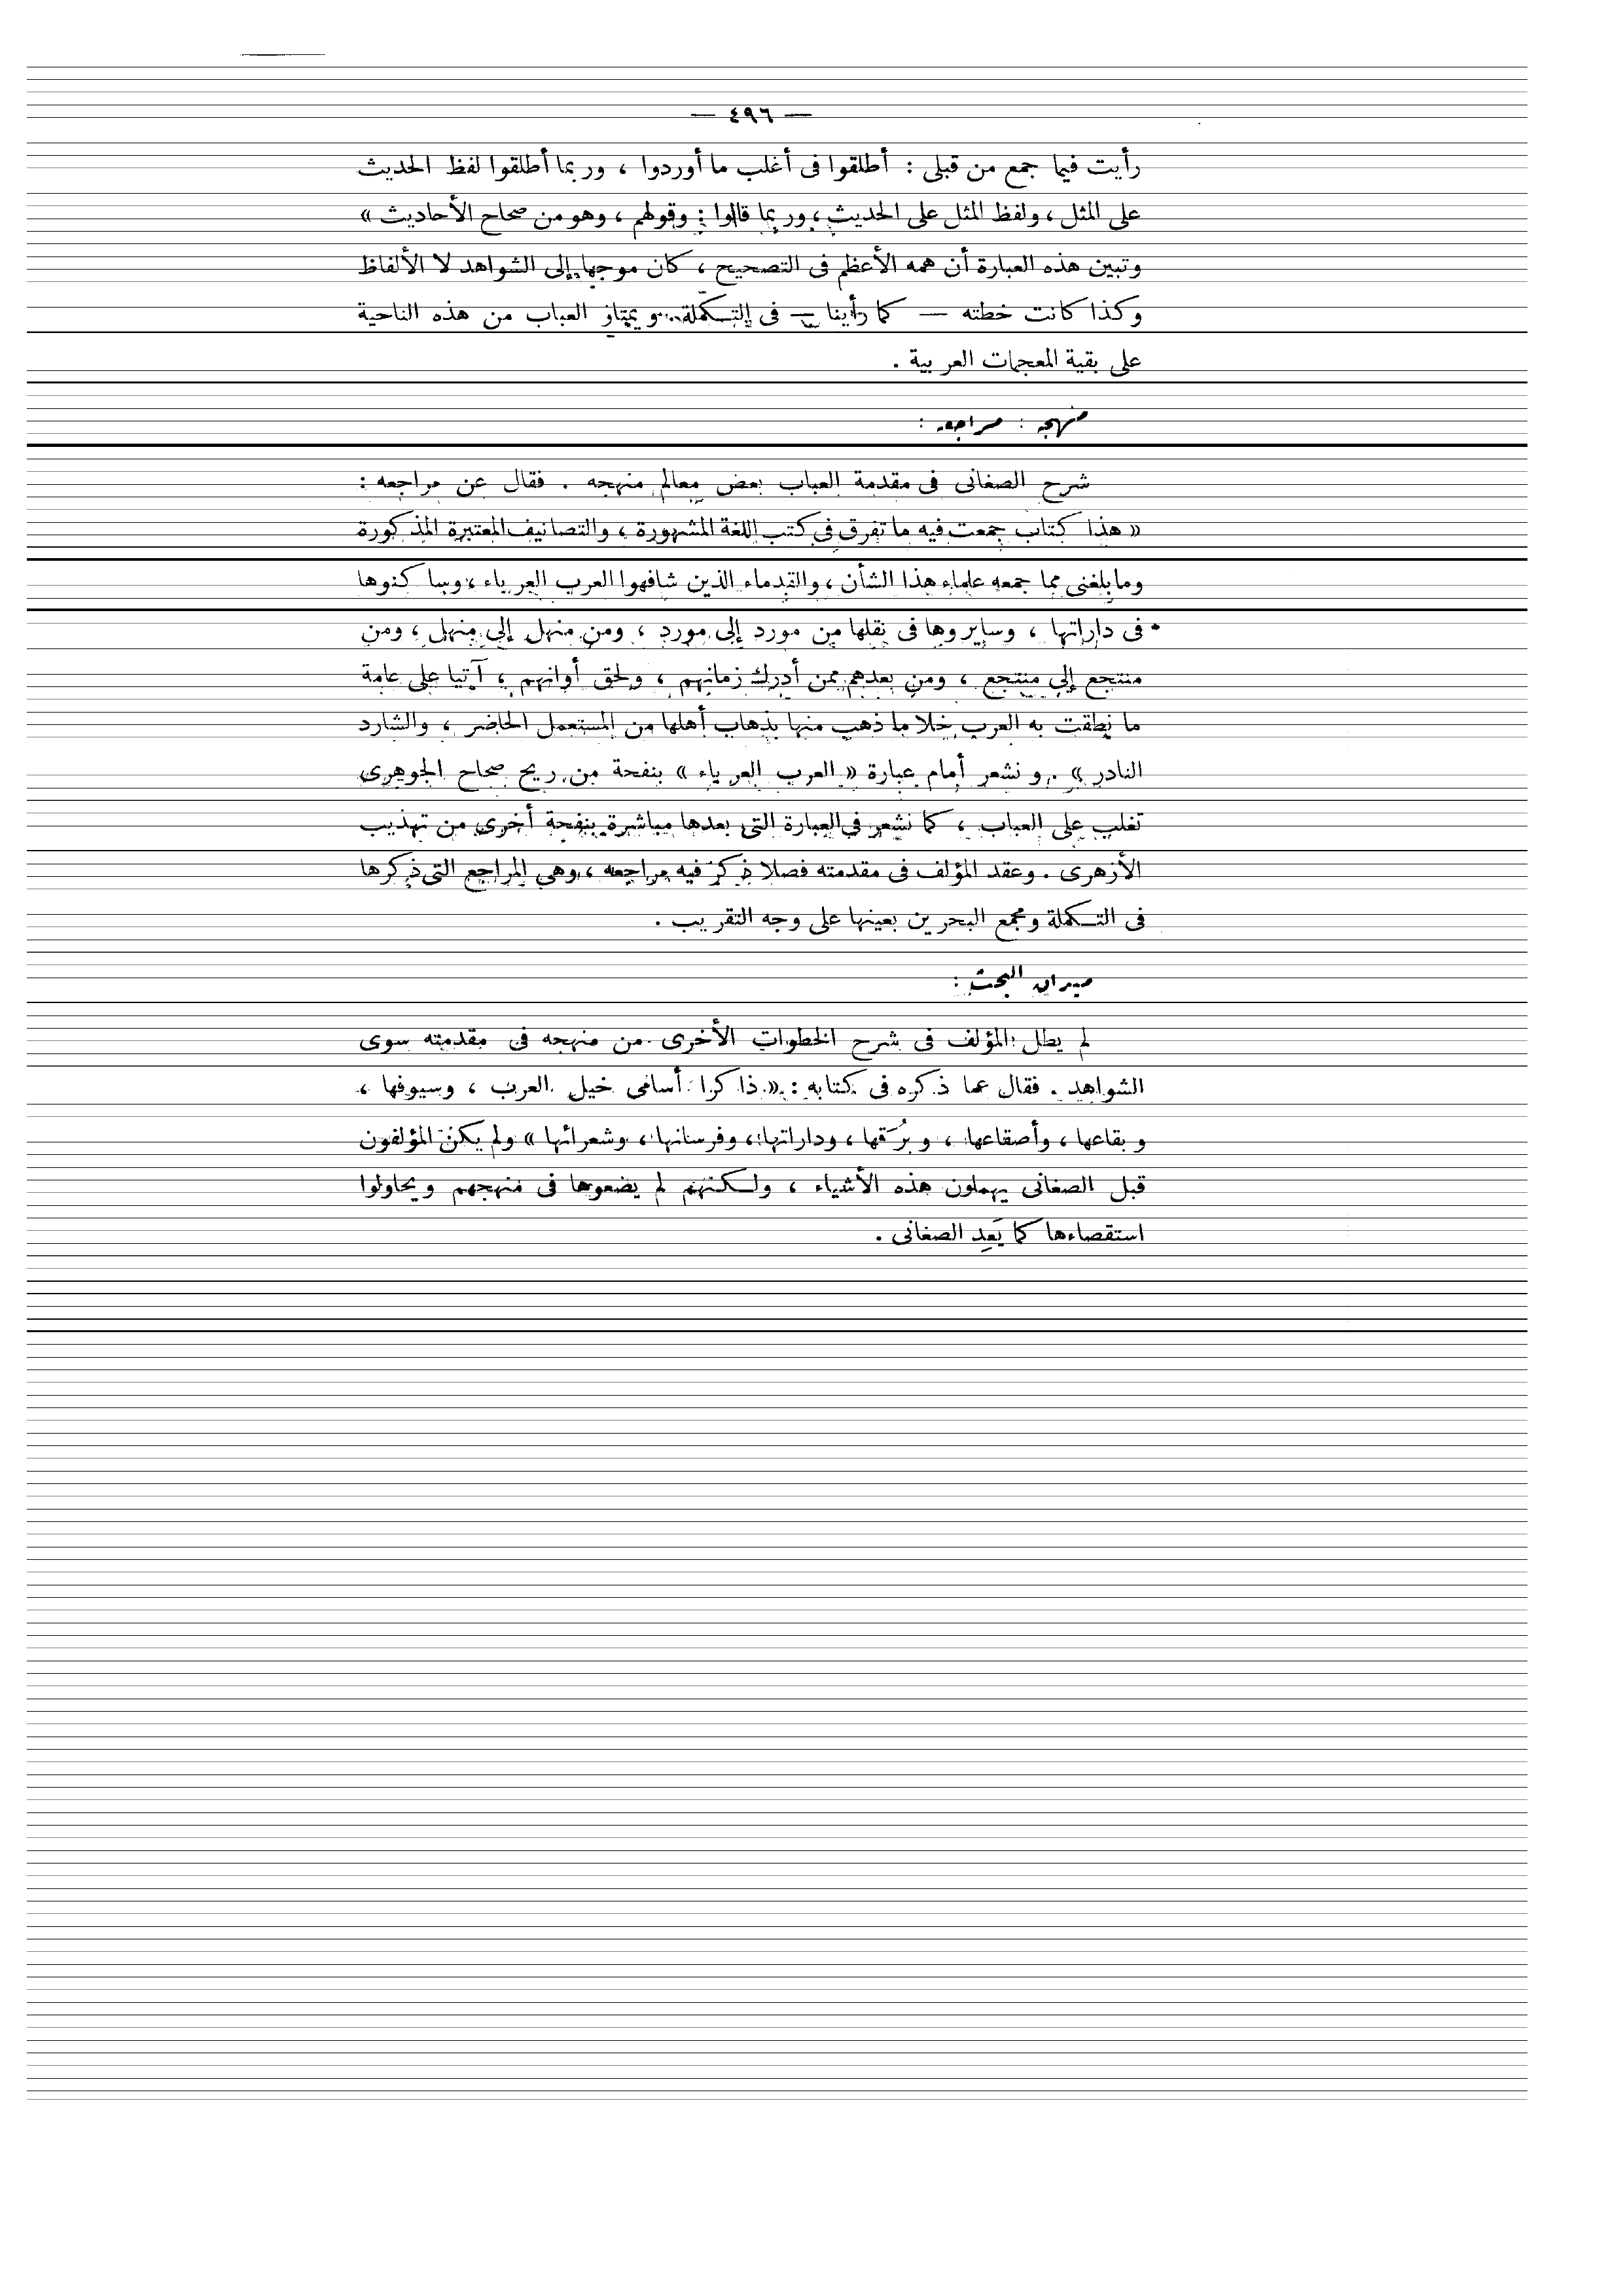 — ٤٩٦ —
رأيت فيما جمع من قبلى : أطلقوا فى أغلب ما أوردوا ، وربما أطلقوا لفظ الحديث
على المثل ، ولفظ المثل على الحديث ، وربما قالوا : وقولهم ، وهو من صحاح الأحاديث »
وتبين هذه العبارة أن همه الأعظم فى التصحيح ، كان موجها إلى الشواهد لا الألفاظ
وكذا كانت خطته — كما رأينا — فى التكملة . ويمتاز العباب من هذه الناحية
على بقية المعجمات العربية .
منهجه : مراجعه :
شرح الصغانى فى مقدمة العباب بعض معالم منهجه . فقال عن مراجعه :
« هذا كتاب جمعت فيه ما تفرق فى كتب اللغة المشهورة ، والتصانيف المعتبرة المذكورة
وما بلغنى مما جمعه علماء هذا الشأن ، والقدماء الذين شافهوا العرب العرباء ، وساكنوها
فى داراتها ، وسايروها فى نقلها من مورد إلى مورد ، ومن منهل إلى منهل ، ومن
منتجع إلى منتجع ، ومن بعدهم ممن أدرك زمانهم ، ولحق أوانهم ، آتيا على عامة
ما نطقت به العرب خلا ما ذهب منها بذهاب أهلها من المستعمل الحاضر ، والشارد
النادر » . ونشعر أمام عبارة « العرب العرباء » بنفحة من ريح صحاح الجوهرى
تغلب على العباب ، كما نشعر فى العبارة التى بعدها مباشرة بنفحة أخرى من تهذيب
الأزهرى . وعقد المؤلف فى مقدمته فصلا ذكر فيه مراجعه ، وهى المراجع التى ذكرها
فى التكملة ومجمع البحرين بعينها على وجه التقريب .
ميدان البحث :
لم يطل المؤلف فى شرح الخطوات الأخرى من منهجه فى مقدمته سوى
الشواهد . فقال عما ذكره فى كتابه : « ذاكرا أسامى خيل العرب ، وسيوفها ،
وبقاعها ، وأصقاعها ، وبُرَقها ، وداراتها ، وفرسانها ، وشعرائها » ولم يكن المؤلفون
قبل الصغانى يهملون هذه الأشياء ، ولكنهم لم يضعوها فى منهجهم ويحاولوا
استقصاءها كما يَعِد الصغانى .